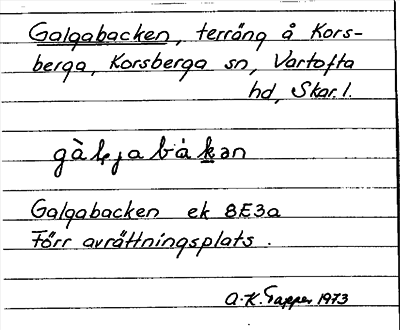 Galgabacken, terräng å Kors-
berga, Korsberga sn, Vartofta
hd, Skar. l.
Galgabacken ek 8E3a
Förr avrättningsplats.
A.-K. Tapper 1973